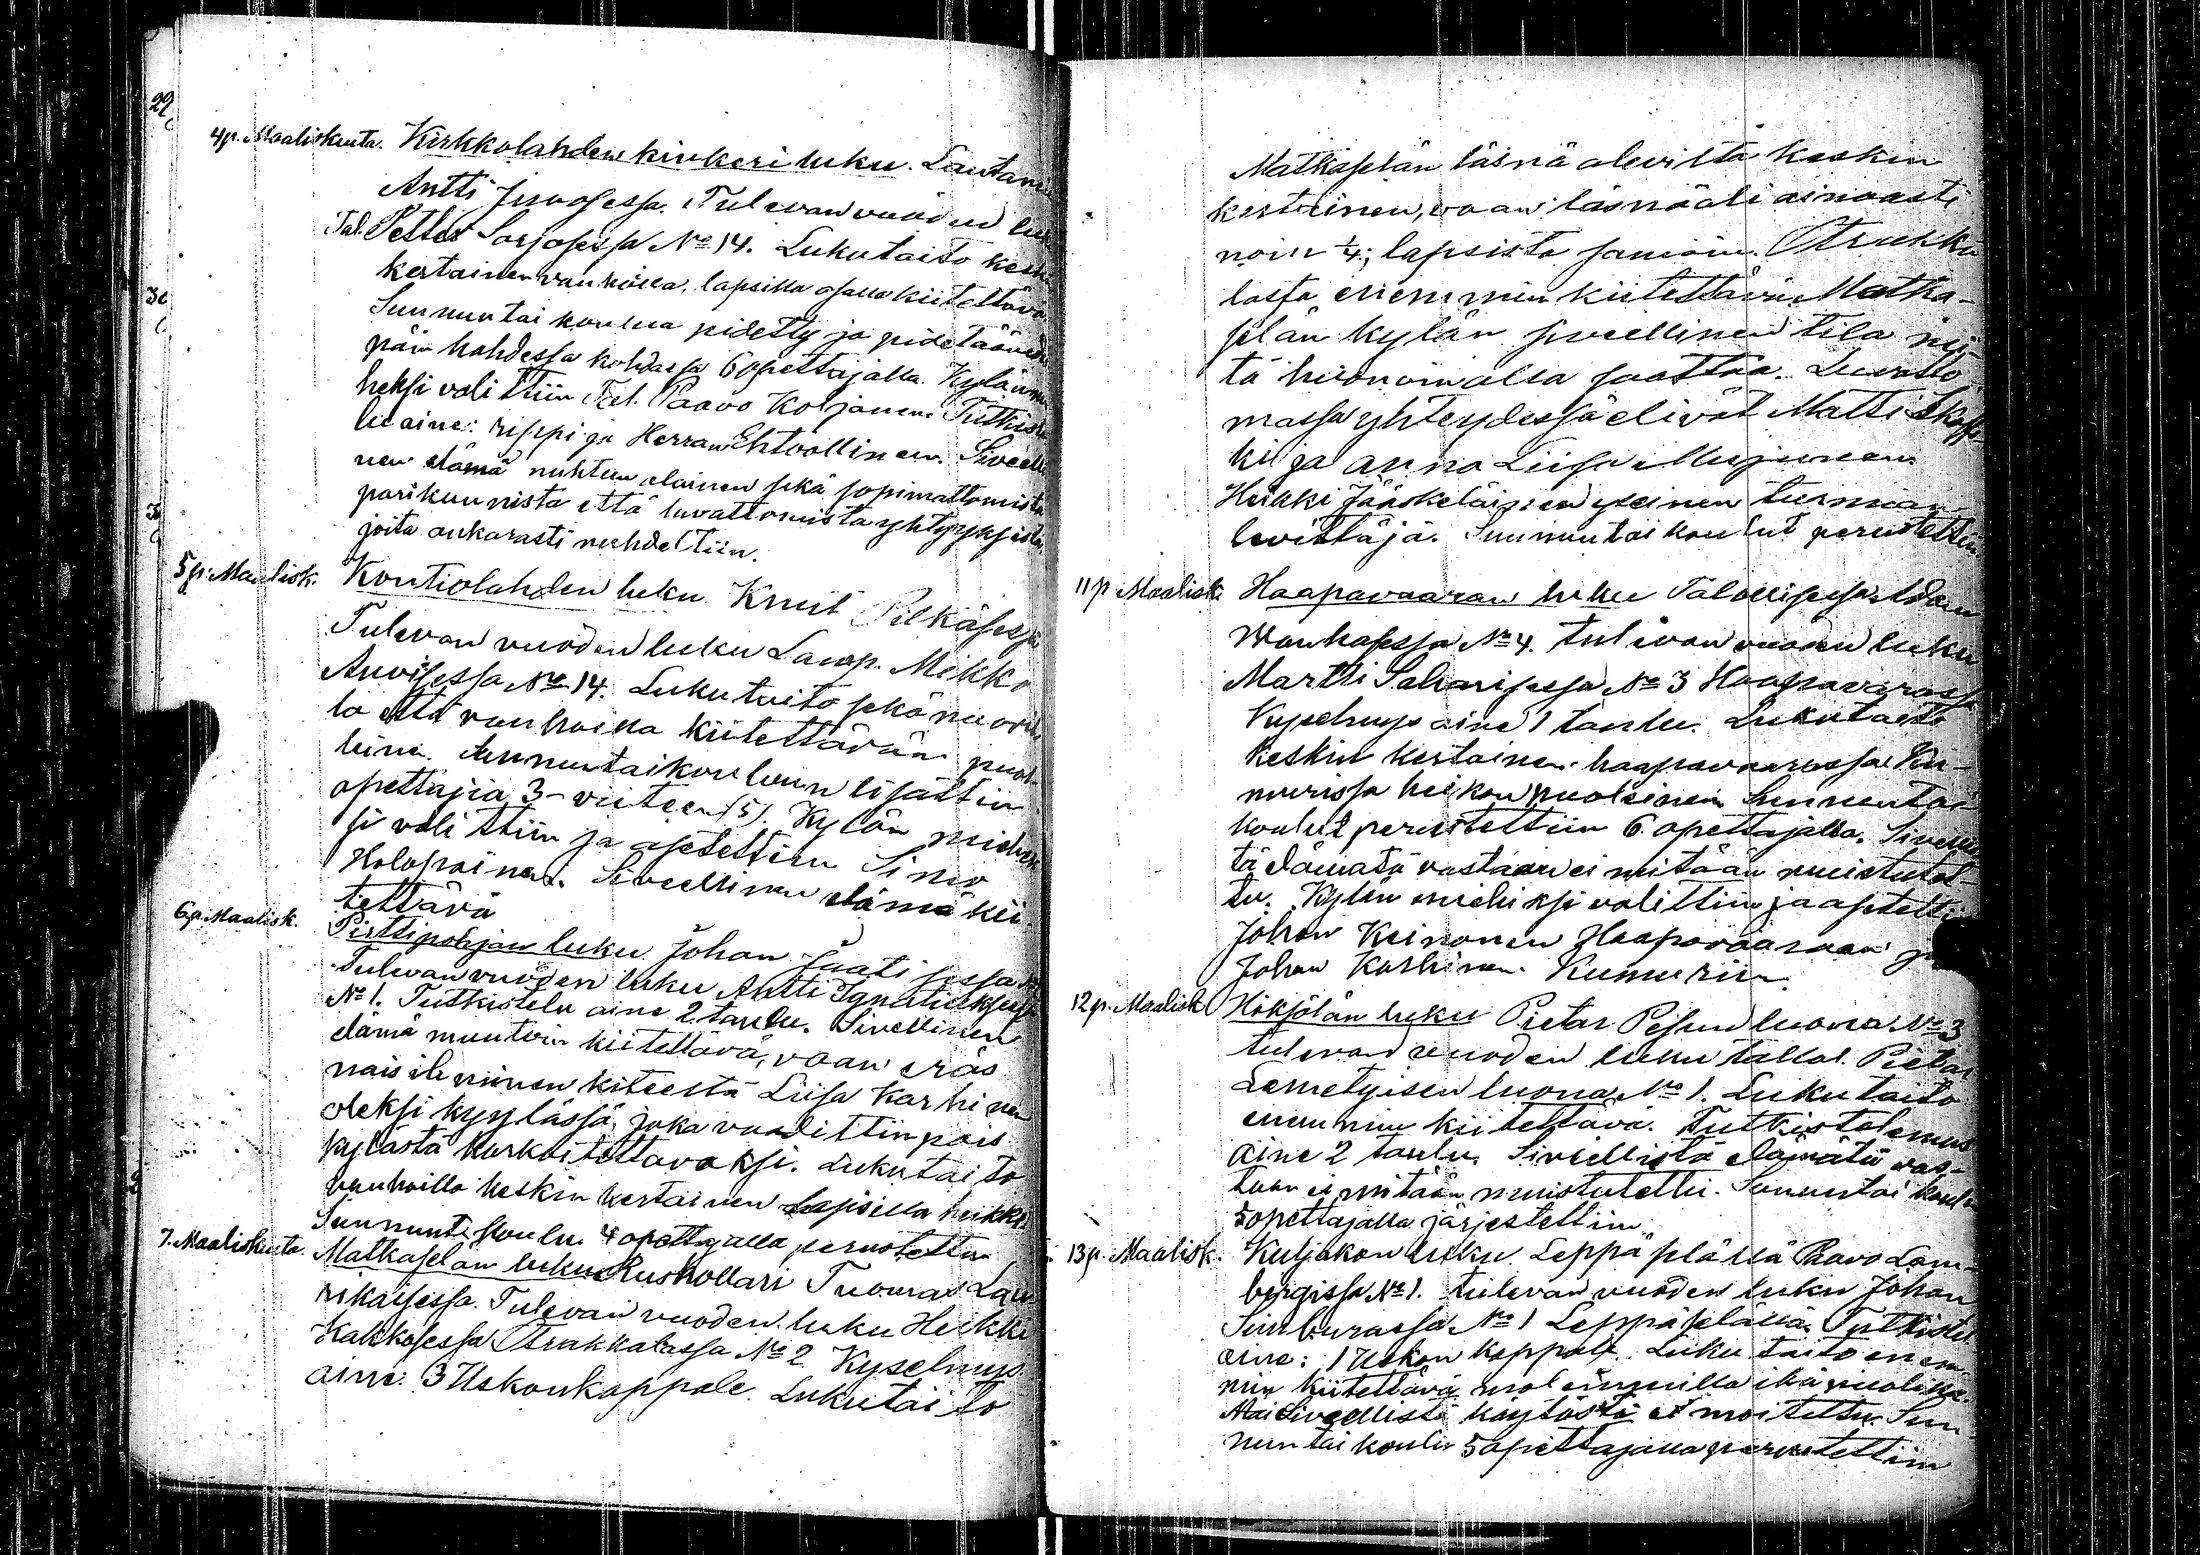 29
4p. Maaliskuuta. Kirkkolahden kinkeri luku. Lautam
Antti Jussesessa. Tulevan vuoden luk
Tal. Petter Sorjosessa No 14. Lukutaito keski
kertainen vanhoilla, lapsilla osalla kiitettävä.
Sunnuntai koulua pidetty ja pidetään
päin kahdessa kohdassa 6 opettajalla. Kylänm
heksi valittiin Tal. Paavo Koljonen. Tutkiste
lu aine: rippi ja Herran Ehtoollinen. Siveelli
nen elämä nuhteen alainen sekä sopimattomista
parikunnista että luvattomista yhtypyksistä
joita ankarasti nuhdeltiin.
5p. Maalisk. Kontiolahden luku Knut Pilkäsessä
Tulevan vuoden luku Lamp. Mikko
Auvisessa No 14. Lukutaito sekä nuoril
la että vanhoilla kiitettävän puol
leinen. Sunnuntaikouluun lisättiin
opettajia 3 - viiteen (5). Kylän miehek
si valittiin ja asetettiin Simo
Holopainen. Siveellinen elämä kii
tettävä
6p. Maalisk. Pirttipohjan luku Johan Jäätisessä
Tulevan vuoden luku Antti Ignatiuksessa
No 1. Tutkistelu aine 2 taulu. Sivellinen
elämä muutoin kiitettävä, vaan eräs
nais ihminen kiteestä Liisa Karhinen
oleksi kyylässä, joka vaadittiin pois
kylästä karkoitettavaksi. Lukutaito
vanhoilla keskin kertainen lapsilla heikko
Sunnunti koulu 4 opettajalla perustettu
7. Maaliskuuta. Matkaselän luku Ruskollari Tuomas Lau
rikaisessa. Tulevan vuoden luku Heikki
Kakkosessa Otrakkalassa No 2 Kyselmys
aine. 3 Uskonkappale. Lukutaito
Matkaselän läsnä olevilta keskin
kertainen, vaan läsnä oli ainoasti
noin 1/4; lapsista samoin. Otrakka
lassa enemmin kiitettävä. Matka-
selän kylän siveellinen tila näy-
tä huonommalta saattaa. Luvatto
massa yhteydessä elivät Matti
ki ja Anna Liisa Mujunen.
Heikki Jääskeläinen yleinen
levittäjä. Sunnuntai koulut perustettiin
11p Maalisk. Haapavaaran luku Talollisessa Adam
Wanhasessa No 4. tulevan vuoden luku
Martti Saharisessa No 3 Haapavarassa
Kyselmys aine 1 taulu. Lukutaito
keskin kertainen haapavaarassa Ku-
murissa heikon puoleinen Sunnuntai
koulut perustettiin 6 opettajalla. Sivellis
tä elämätä vastaan ei mitään muistutet-
tu. Kylän miehiksi valittiin ja asetettii
Johan Keinonen Haapavaaraan ja
Johan Karhinen Kumuriin.
12p. Maalisk Höksölän luku Pietar Pesun luona No 3
tulevan vuoden luku tallol. Pietar
Lemetyisen luona No 1. Lukutaito
enemmin kiitettävä. Tutkistelemus
aine 2 taulu. Siveellistä elämätä vas-
taan ei mitään muistutettu. Sunnuntai koulu
5 opettajalla järjestettiin
13p. Maalisk. Kuljakon luku Leppäselällä Paavo Lam-
bergissa No 1. tulevan vuoden luku Johan
Suuburassa No 1 Leppäselällä Tutkistel
aine: 1 Uskon kappale. Luku taito enem
min kiitettävä molemmilla ikä puolilla.
Siveellistä käytöstä ei moitettu. Sun-
nuntai koulu 5 opettajalla perustettiin